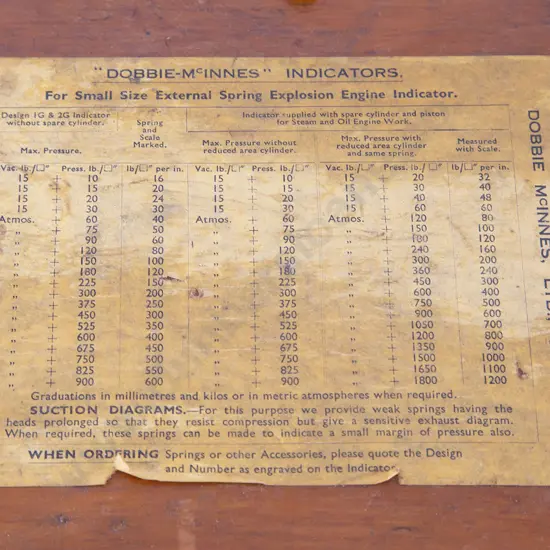 "DOBBIE-McINNES" INDICATORS.
For Small Size External Spring Explosion Engine Indicator.
Design 1G & 2G Indicator
without spare cylinder.
Max. Pressure.
Spring
and
Scale
Marked.
Indicator supplied with spare cylinder and piston
for Steam and Oil Engine Work.
Max. Pressure without
reduced area cylinder.
Max. Pressure with
reduced area cylinder
and same spring.
Measured
with Scale.
Vac. lb./□" Press. lb./□" lb./□" per in. Vac. lb./□" Press. lb./□" Vac. lb./□" Press. lb./□" lb./□" per in.
15 + 10 16 15 + 10 15 + 20 32
15 + 15 20 15 + 15 15 + 30 40
15 + 20 24 15 + 20 15 + 40 48
15 + 30 30 15 + 30 15 + 60 60
Atmos. + 60 40 Atmos. + 60 Atmos. + 120 80
„ + 75 50 „ + 75 „ + 150 100
„ + 90 60 „ + 90 „ + 180 120
„ + 120 80 „ + 120 „ + 240 160
„ + 150 100 „ + 150 „ + 300 200
„ + 180 120 „ + 180 „ + 360 240
„ + 225 150 „ + 225 „ + 450 300
„ + 300 200 „ + 300 „ + 600 400
„ + 375 250 „ + 375 „ + 750 500
„ + 450 300 „ + 450 „ + 900 600
„ + 525 350 „ + 525 „ + 1050 700
„ + 600 400 „ + 600 „ + 1200 800
„ + 675 450 „ + 675 „ + 1350 900
„ + 750 500 „ + 750 „ + 1500 1000
„ + 825 550 „ + 825 „ + 1650 1100
„ + 900 600 „ + 900 „ + 1800 1200
Graduations in millimetres and kilos or in metric atmospheres when required.
SUCTION DIAGRAMS.—For this purpose we provide weak springs having the
heads prolonged so that they resist compression but give a sensitive exhaust diagram.
When required, these springs can be made to indicate a small margin of pressure also.
WHEN ORDERING Springs or other Accessories, please quote the Design
and Number as engraved on the Indicator
DOBBIE McINNES,